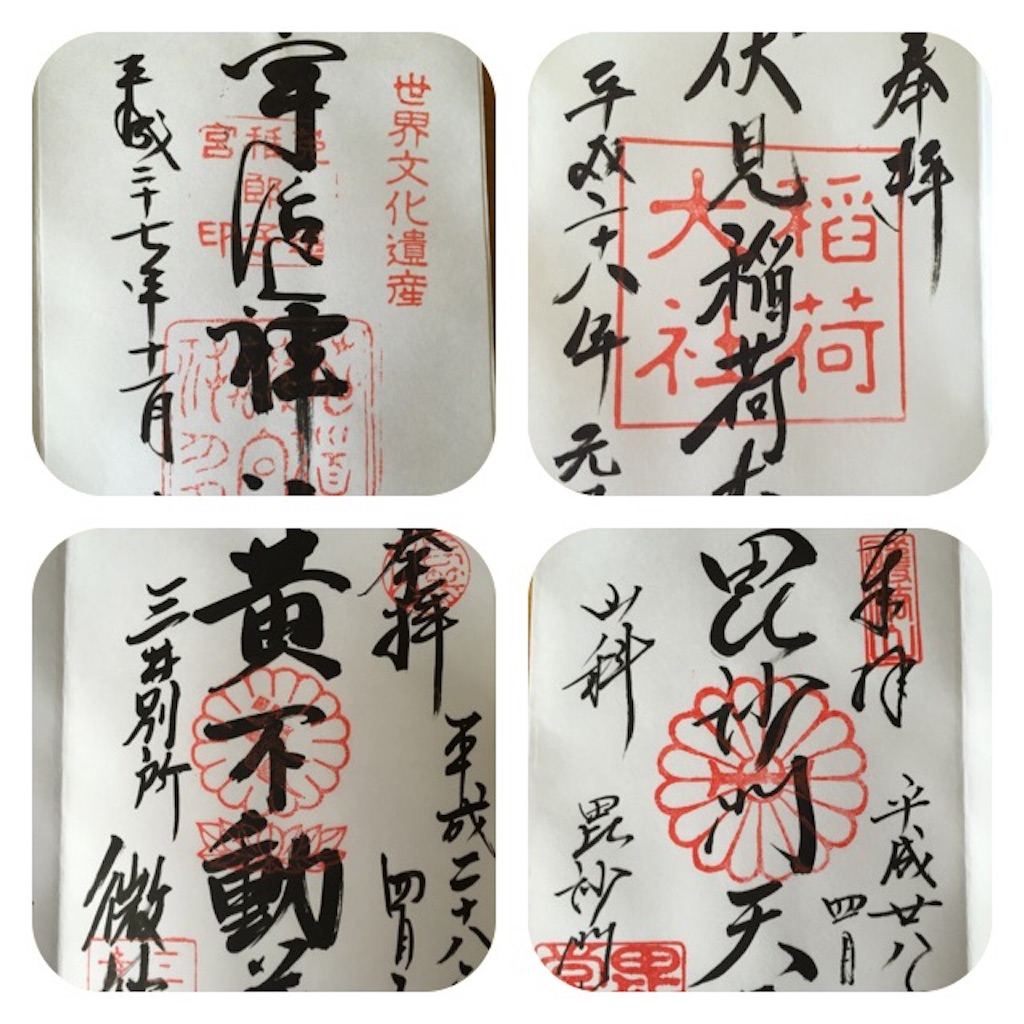 世界文化遺産
宇治上神社
平成二十七年十一月
宮
印
奉拝
伏見稲荷大
稲荷
大社
平成二十八年
元
奉拝
平成二十八
四月
黄不動
三井別所
微
奉拝
平成廿八
四月
毘沙門天
山科
毘沙門